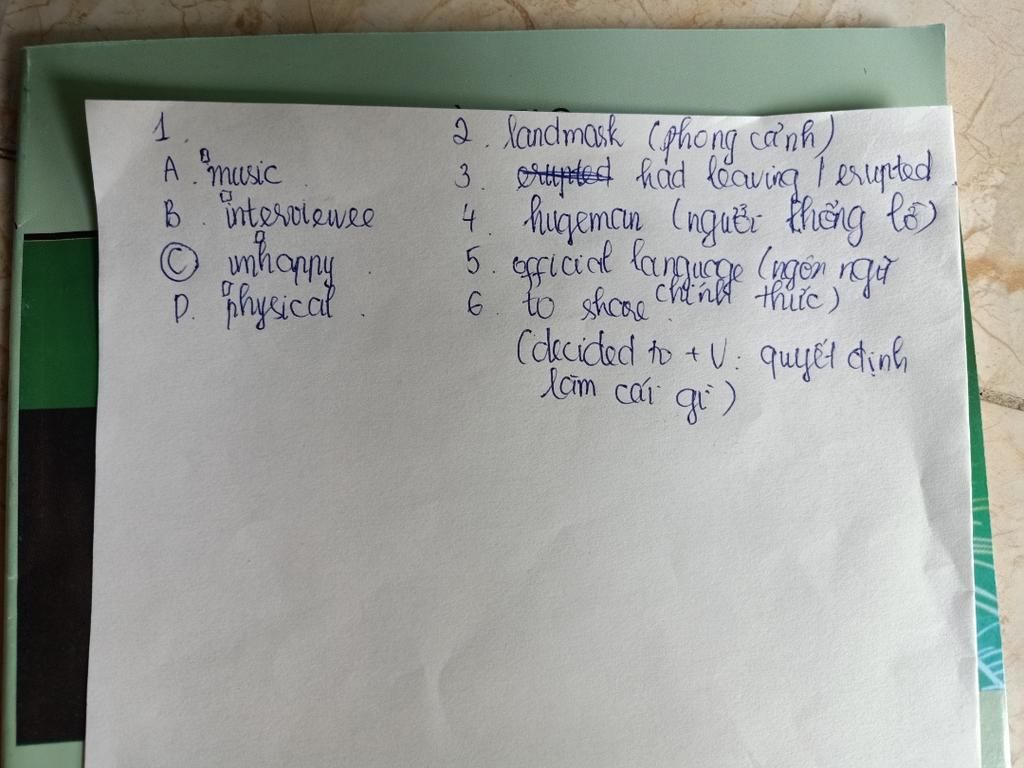 1.
A. music
B. interviewee
C unhappy
D. physical.
2. landmask (phong cảnh)
3. erupted had leaving / erupted
4. hugeman (người khổng lồ)
5. official language (ngôn ngữ
chính thức)
6. to share.
(decided to + V: quyết định
làm cái gì)